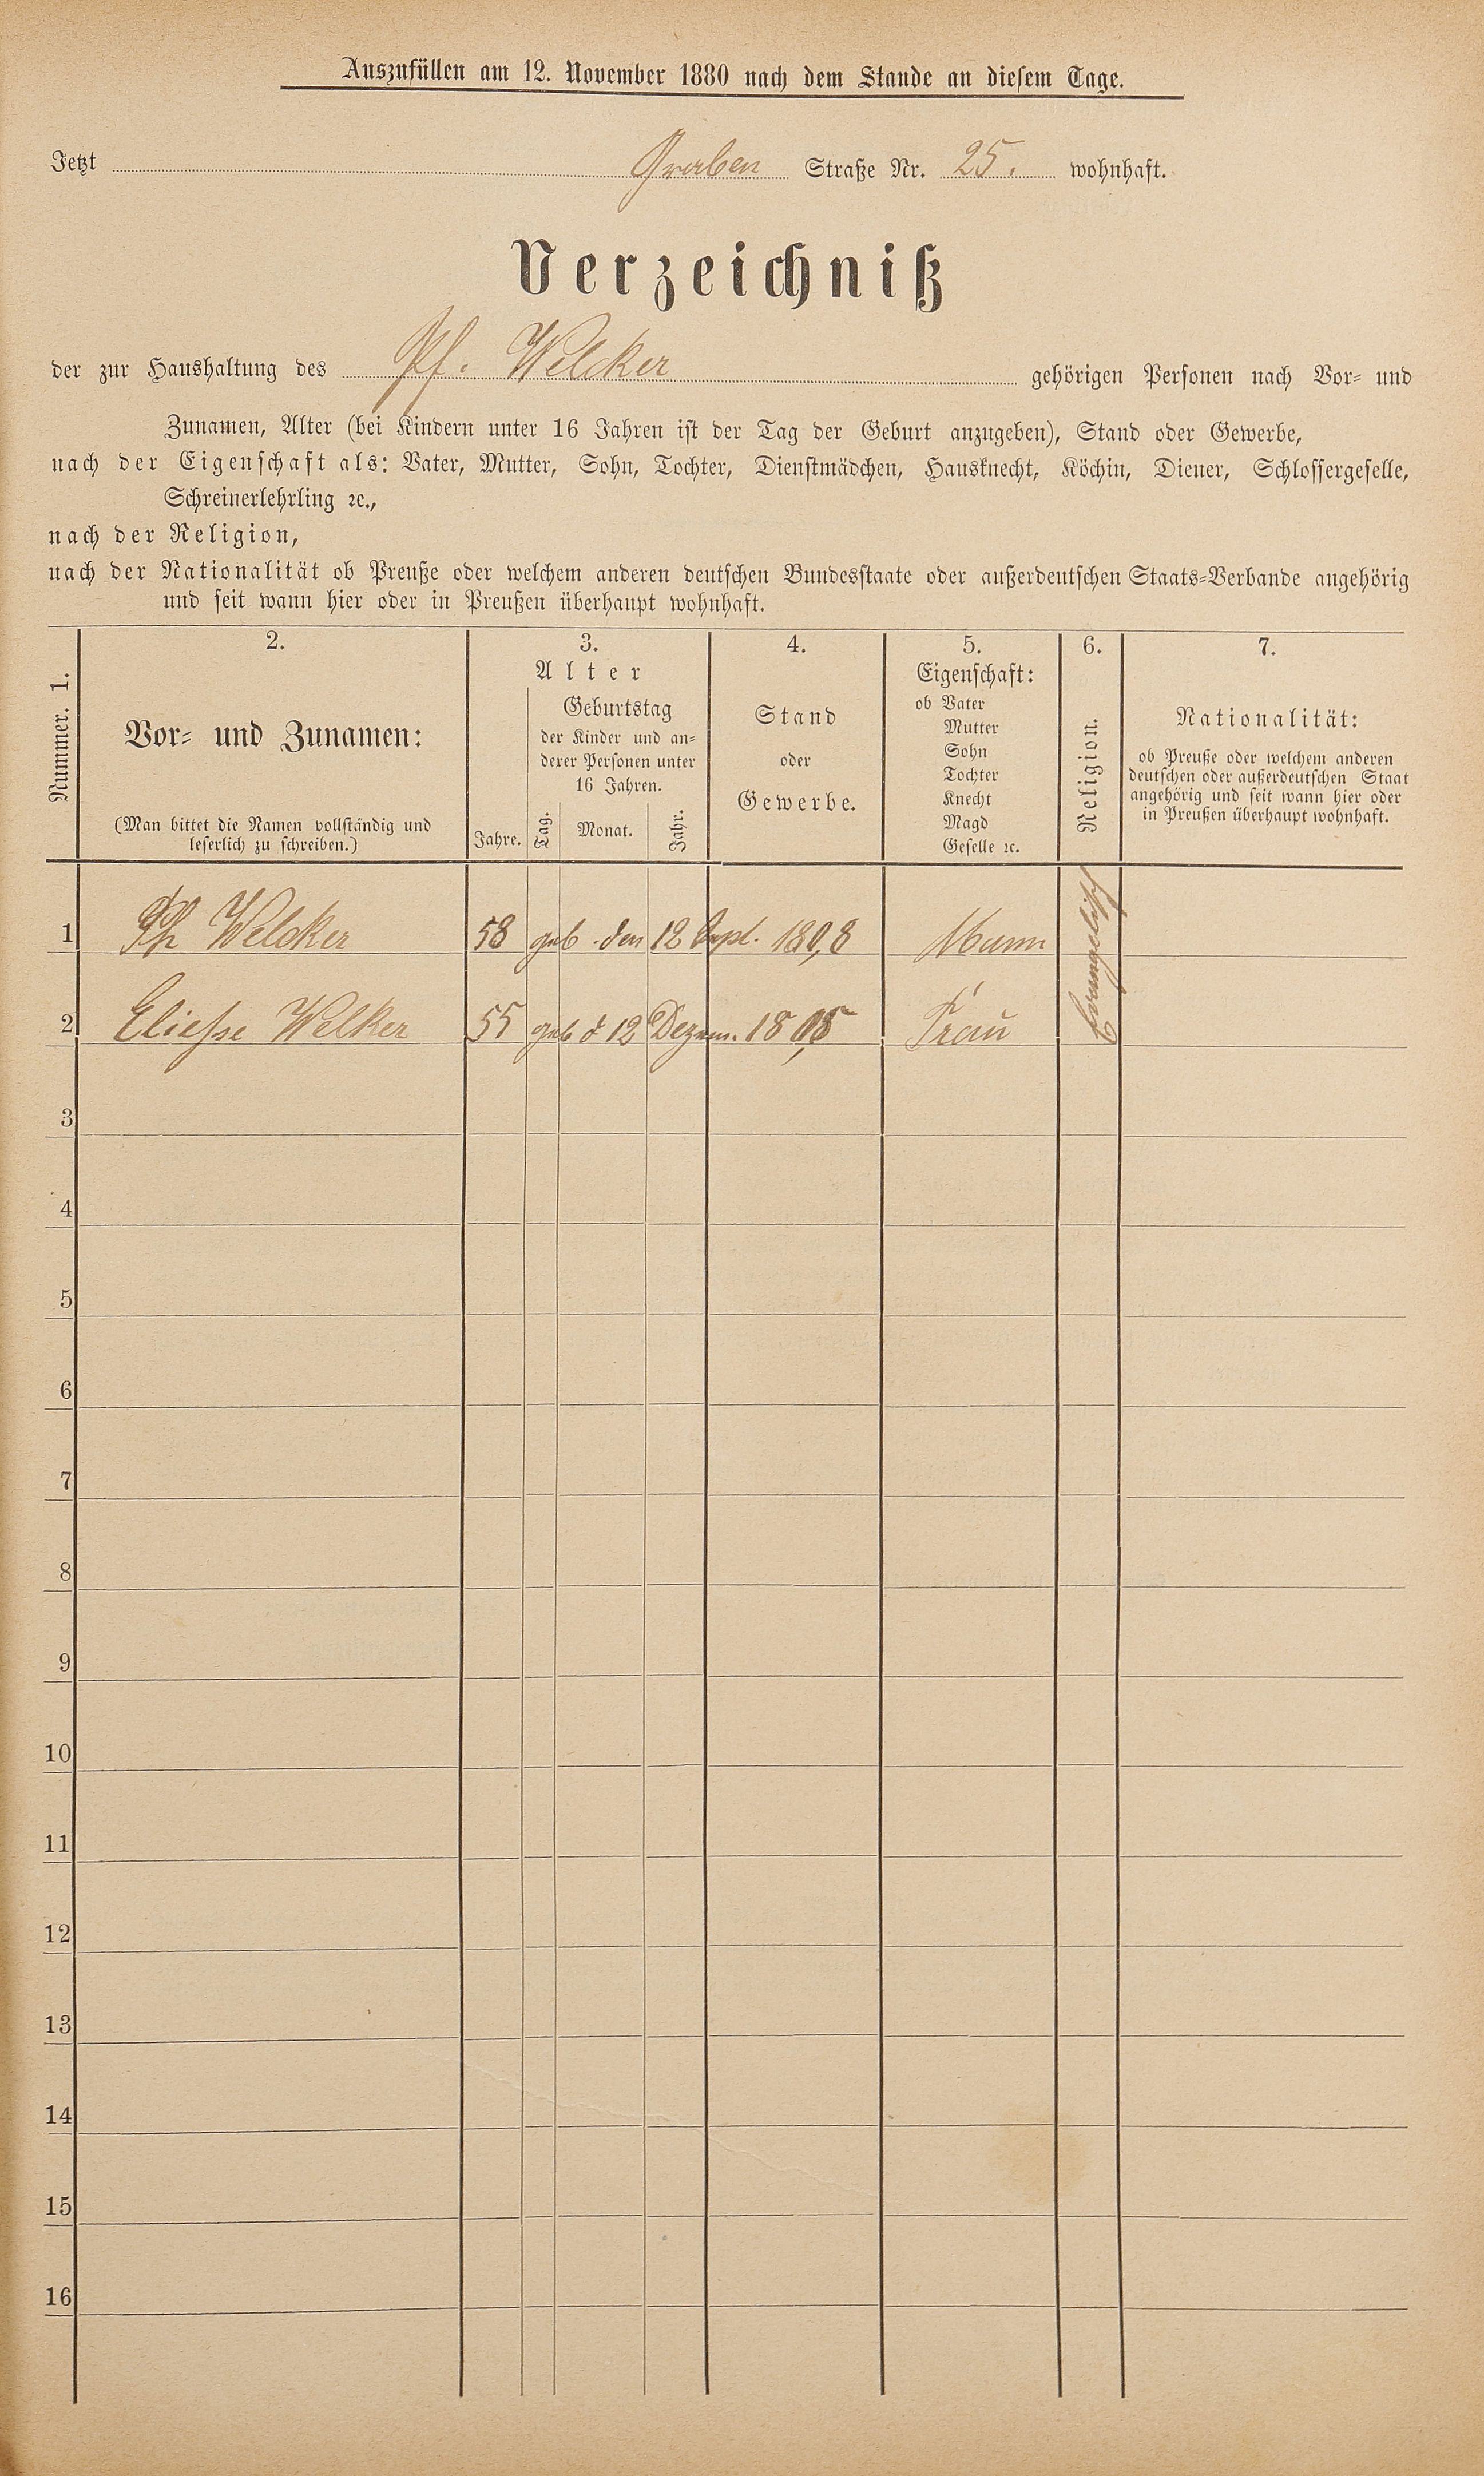 Auszufüllen am 12. November 1880 nach dem Stande an diesem Tage.
Jetzt Graben Straße Nr. 25. wohnhaft.
Verzeichniß
der zur Haushaltung des Pf. Welcker gehörigen Personen nach Vor- und
Zunamen, Alter (bei Kindern unter 16 Jahren ist der Tag der Geburt anzugeben), Stand oder Gewerbe,
nach der Eigenschaft als: Vater, Mutter, Sohn, Tochter, Dienstmädchen, Hausknecht, Köchin, Diener, Schlossergeselle,
Schreinerlehrling ꝛc.,
nach der Religion,
nach der Nationalität ob Preuße oder welchem anderen deutschen Bundesstaate oder außerdeutschen Staats-Verbande angehörig
und seit wann hier oder in Preußen überhaupt wohnhaft.
Nummer. 1.
2.
Vor- und Zunamen:
(Man bittet die Namen vollständig und
leserlich zu schreiben.)
3.
Alter
Jahre.
Geburtstag
der Kinder und an-
derer Personen unter
16 Jahren.
Tag. Monat. Jahr.
4.
Stand
oder
Gewerbe.
5.
Eigenschaft:
ob Vater
Mutter
Sohn
Tochter
Knecht
Magd
Geselle ꝛc.
6.
Religion.
7.
Nationalität:
ob Preuße oder welchem anderen
deutschen oder außerdeutschen Staat
angehörig und seit wann hier oder
in Preußen überhaupt wohnhaft.
1 Ph Welcker 58 geb. den 12 Sept. Mann Evangelisch
2 Eliesse Welker 55 geb d 12 Dezem. Frau
3
4
5
6
7
8
9
10
11
12
13
14
15
16